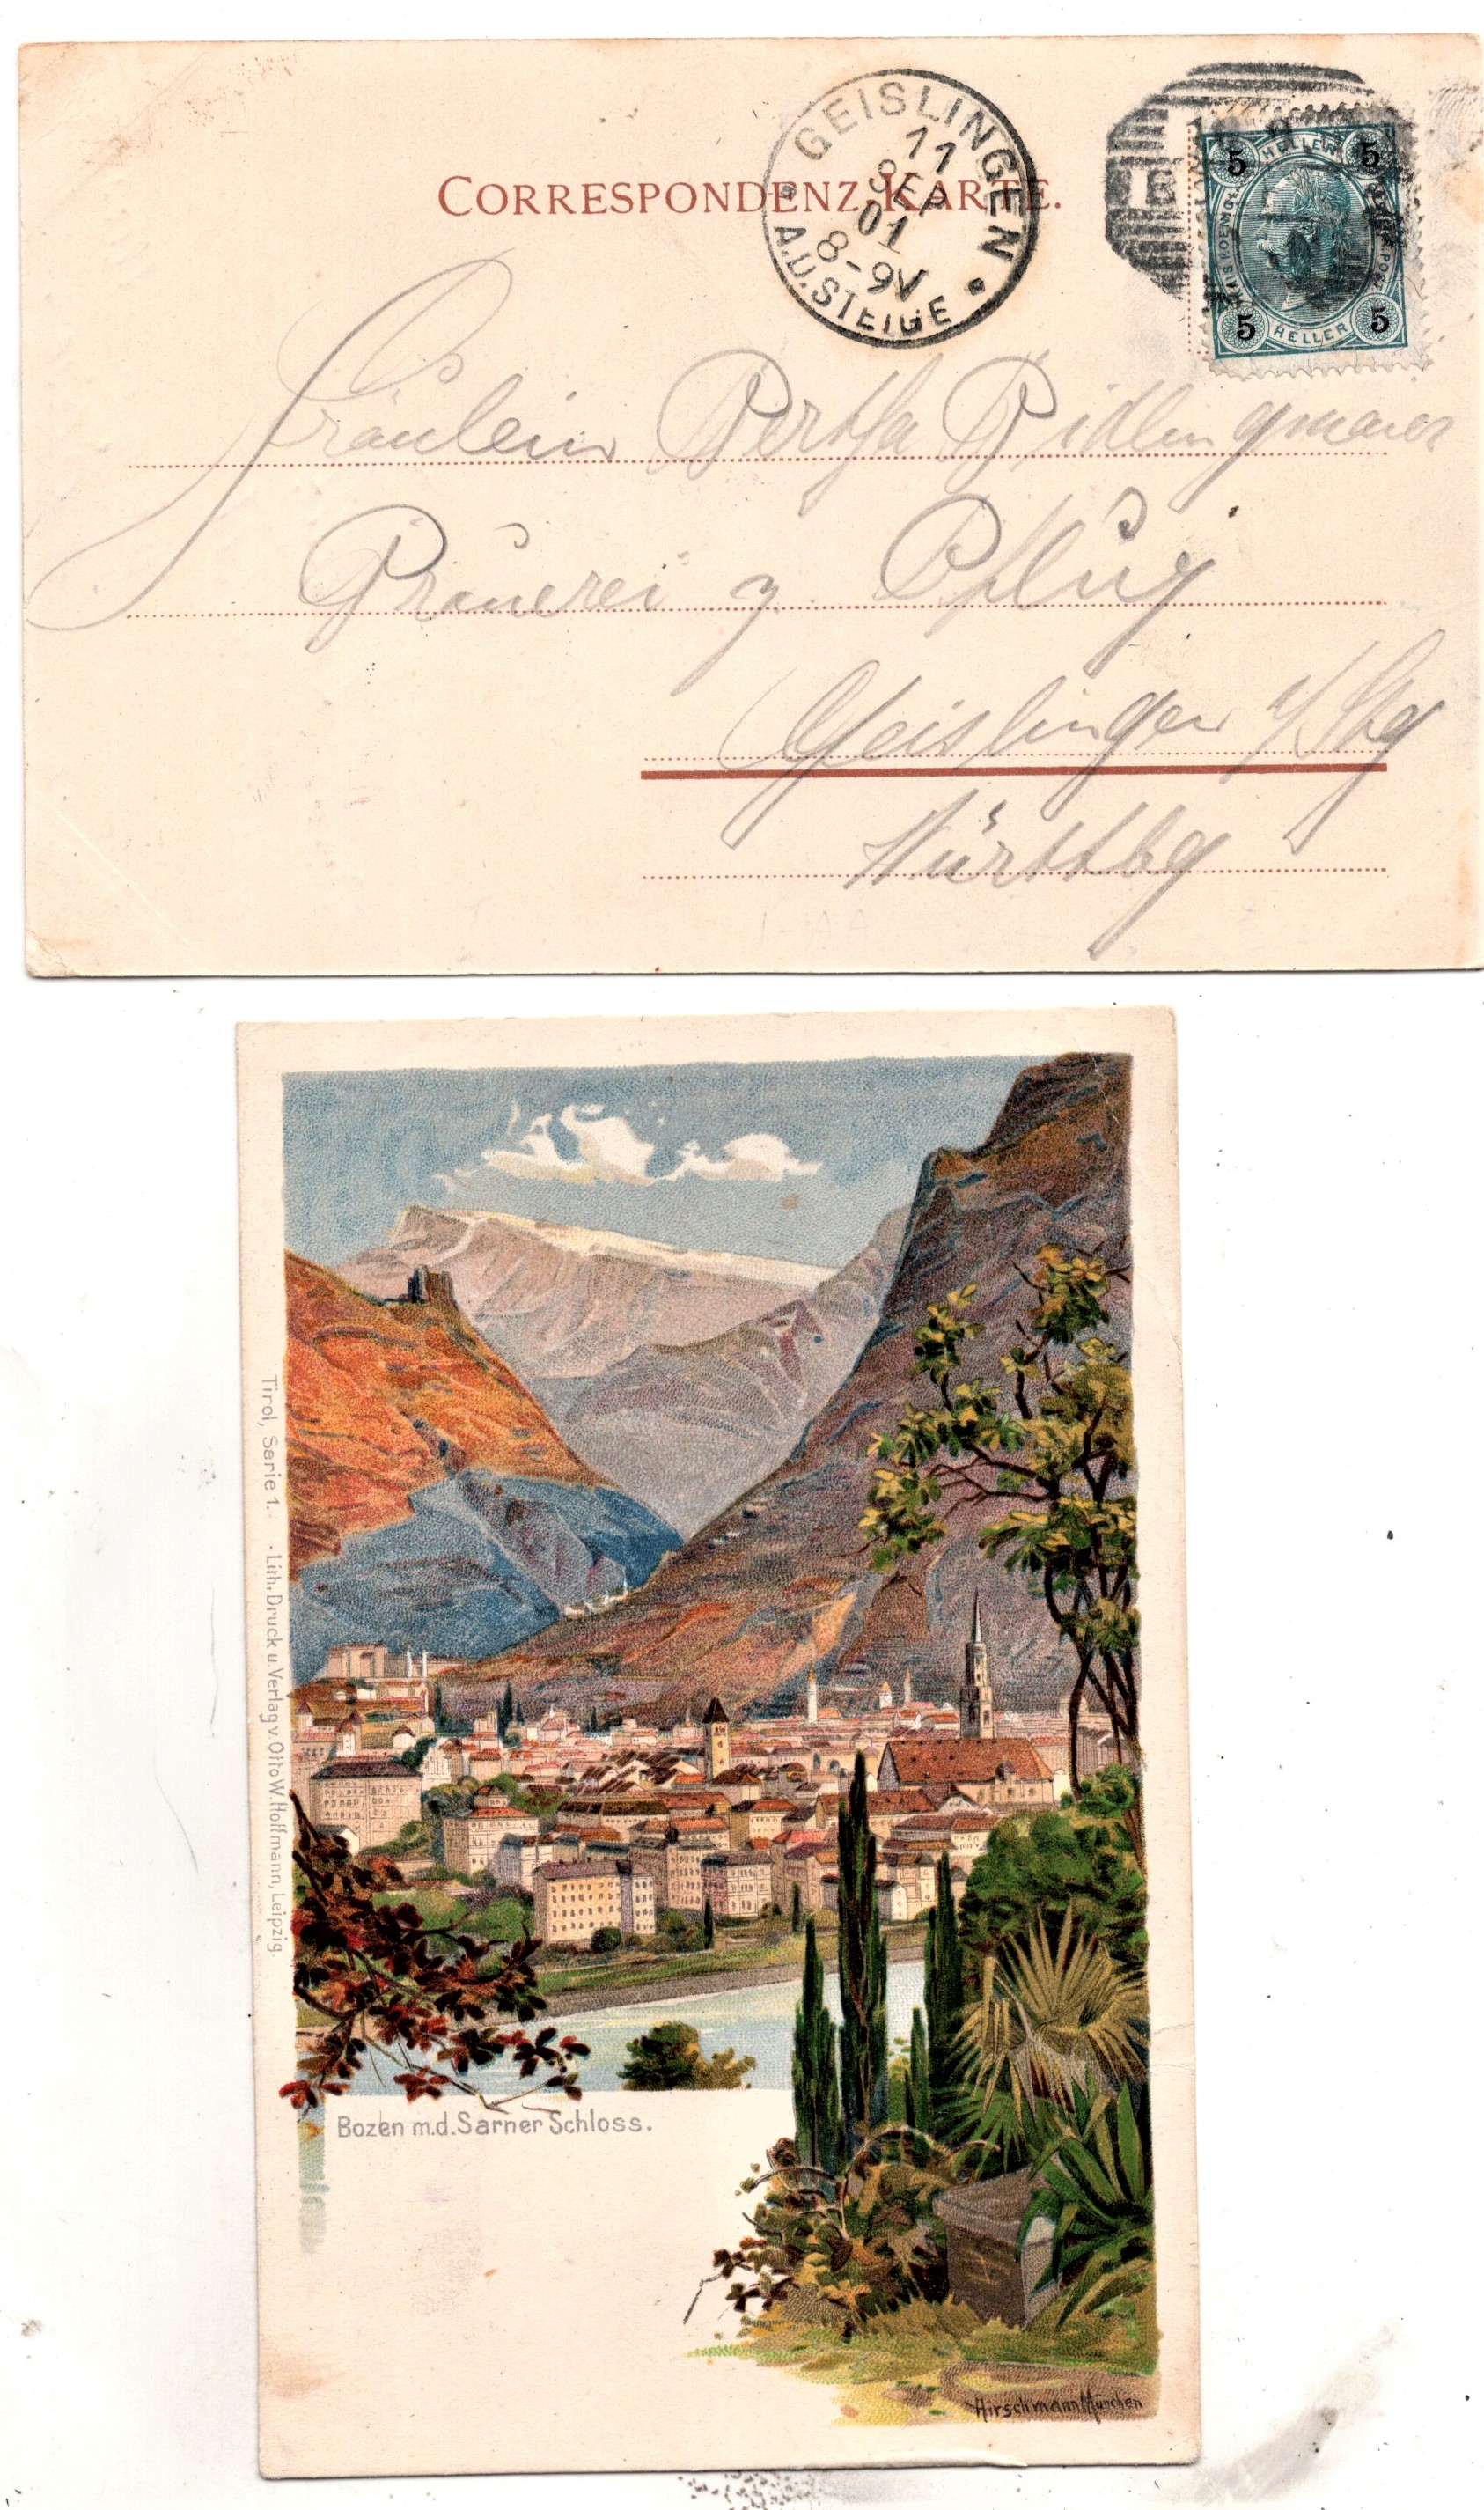 CORRESPONDENZ-KARTE.
GEISLINGEN
11
SEP
01
8-9V
A.D.STEIGE
5 HELLER 5
5 HELLER 5
Fräulein Bertha Ridlingmaier
Brauerei z. Pflug
Geislingen a/Stg
Württbg
Tirol, Serie 1. · Lith. Druck u. Verlag v. Otto W. Hoffmann, Leipzig.
Bozen m.d. Sarner Schloss.
Hirschmann München